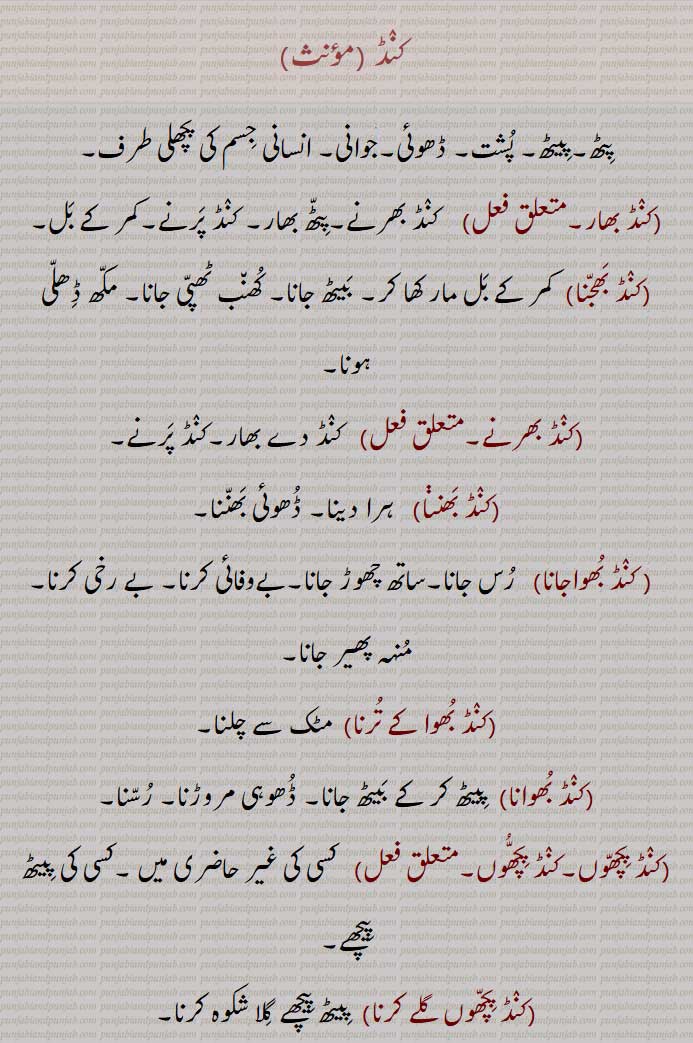 کنْڈ (مؤنث)
پِٹھ۔پِیٹھ۔ پُشت۔ ڈھوئی۔جوانی۔ انسانی جِسم کی پچھلی طرف۔
(کنْڈ بھار۔متعلق فعل) کنْڈ بھرنے۔پِٹّھ بھار۔ کنْڈ پَرنے۔کمر کے بَل۔
(کنْڈ بَھجّنا) کمر کے بَل مار کھا کر۔ بَیٹھ جانا۔ کُھنّب ٹھپّی جانا۔ مکّھ ڈِھلّی
ہونا۔
(کنْڈ بھرنے۔متعلق فعل) کنْڈ دے بھار۔کنْڈ پَرنے۔
(کنْڈ بَھننا) ہرا دینا۔ ڈُھوئی بَھنّنا۔
( کنْڈ بُھواجانا) رُس جانا۔ساتھ چھوڑ جانا۔بےوفائی کرنا۔ بے رخی کرنا۔
مُنہہ پھیر جانا۔
(کنْڈ بُھوا کے تُرنا) مٹک سے چلنا۔
(کنْڈ بُھوانا) پِیٹھ کر کے بَیٹھ جانا۔ ڈُھوہی مروڑنا۔ رُسّنا۔
(کنْڈ پِچھّوں۔کنْڈ پچُھّوں۔متعلق فعل) کسی کی غیر حاضری میں ۔کسی کی پِیٹھ
پِیچھے۔
(کنْڈ پِچّھوں گلے کرنا) پِیٹھ پِیچھے گِلا شکوہ کرنا۔